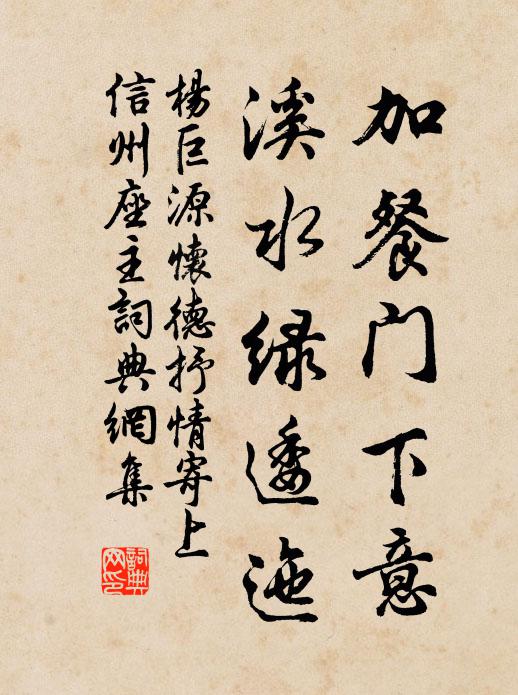 加餐门下意
溪水绿逶迤
楊巨源懷德抒情寄上
信州座主詞典網集
詞典网印